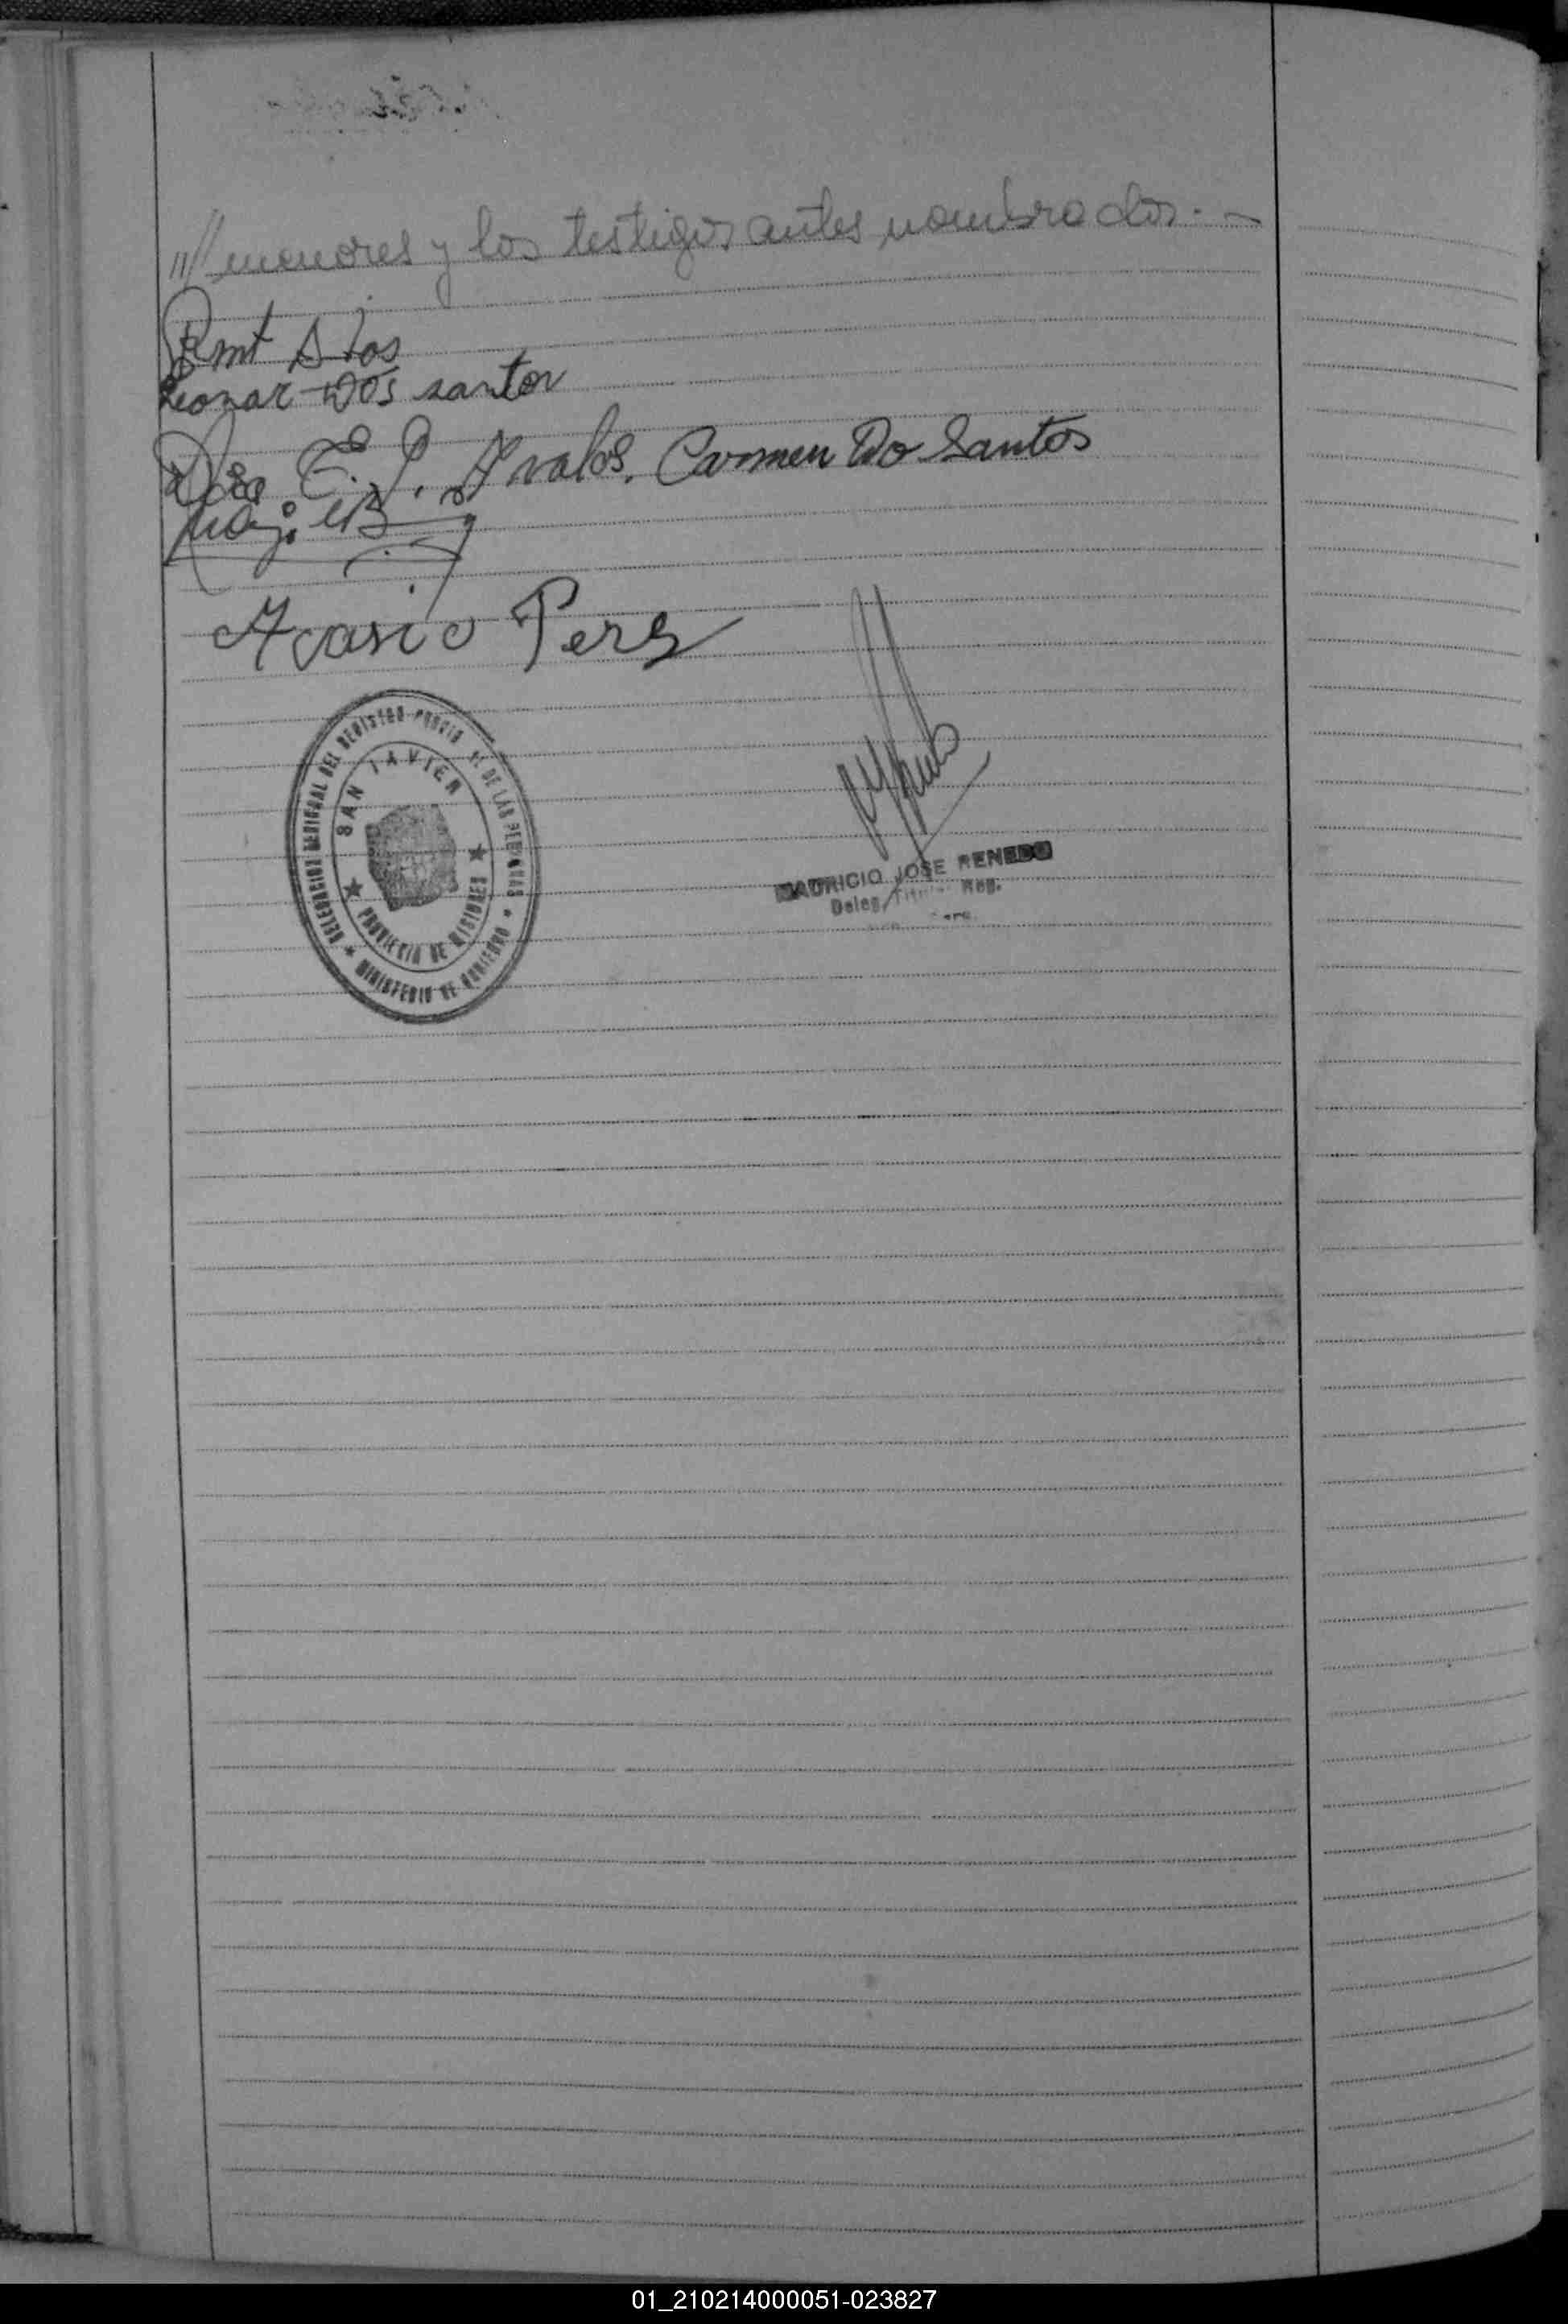 // menores y los testigos antes nombrados.-
Leonar Dos santos
Rosa E. J. Avalos. Carmen Do Santos
Acasio Pers
DELEGACION SECCIONAL DEL REGISTRO PROVINCIAL DE LAS PERSONAS
SAN JAVIER
PROVINCIA DE MISIONES
MINISTERIO DE GOBIERNO
MAURICIO JOSE RENEDO
Deleg. Titular Reg.
01_210214000051-023827